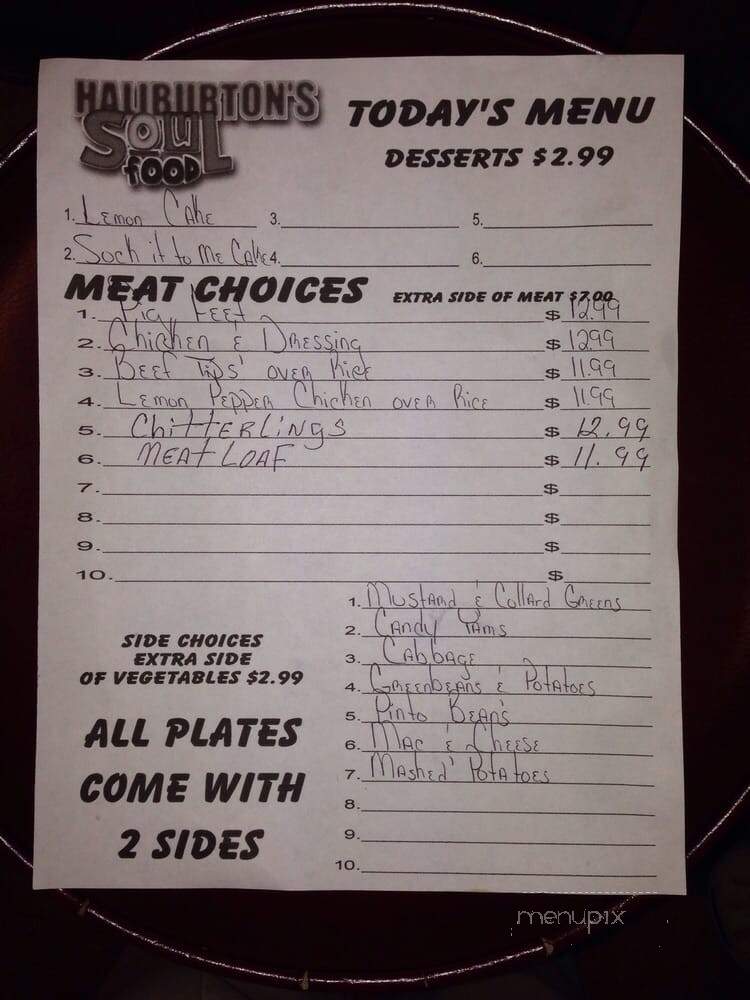 HALIBURTON'S
SOUL
FOOD
TODAY'S MENU
DESSERTS $2.99
1. Lemon Cake 3. 5.
2. Sock it to Me Cake 4. 6.
MEAT CHOICES EXTRA SIDE OF MEAT $7.00
1. Pig Feet $ 12.99
2. Chicken & Dressing $ 12.99
3. Beef Tips' over Rice $ 11.99
4. Lemon Pepper Chicken over Rice $ 11.99
5. ChittERLINGS $ 12.99
6. MEAT LOAF $ 11.99
7. $
8. $
9. $
10. $
SIDE CHOICES
EXTRA SIDE
OF VEGETABLES $2.99
ALL PLATES
COME WITH
2 SIDES
1. Mustard & Collard Greens
2. Candy Yams
3. Cabbage
4. Greenbeans & Potatoes
5. Pinto Bean's
6. Mac & Cheese
7. Mashed' Potatoes
8.
9.
10.
menupix